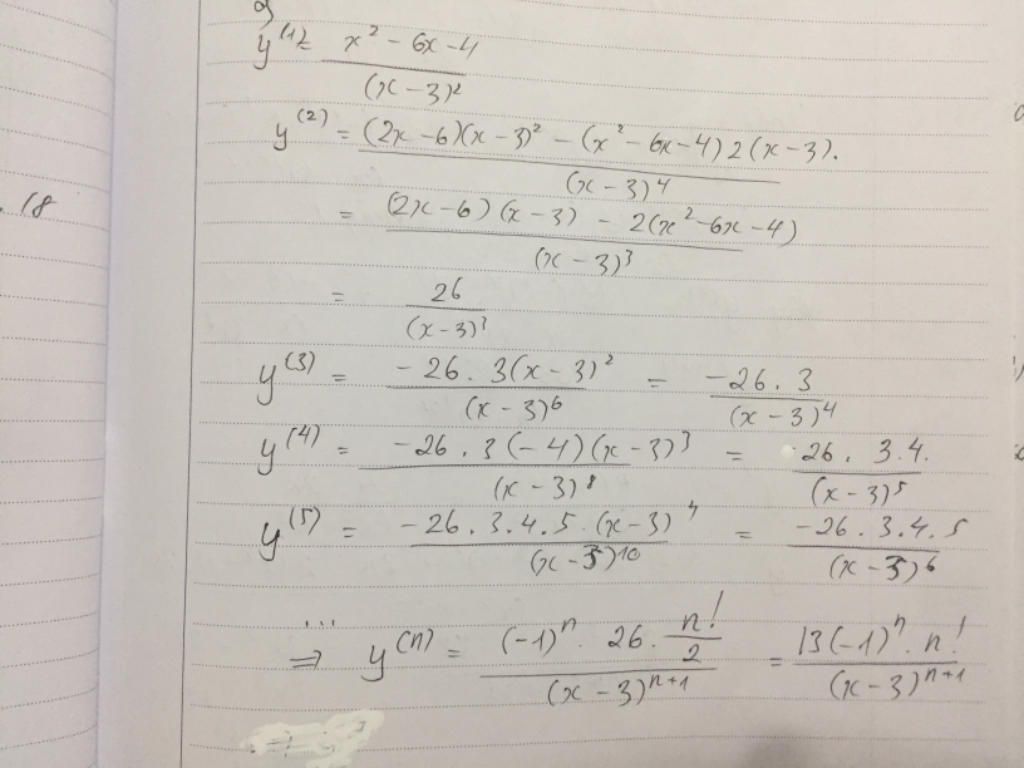 y^(1) = (x² - 6x - 4) / (x - 3)²
y^(2) = ((2x - 6)(x - 3)² - (x² - 6x - 4) 2(x - 3).) / (x - 3)⁴
. 18
= ((2x - 6)(x - 3) - 2(x² - 6x - 4)) / (x - 3)³
= 26 / (x - 3)³
y^(3) = (-26 . 3(x - 3)²) / (x - 3)⁶ = (-26 . 3) / (x - 3)⁴
y^(4) = (-26 . 3(-4)(x - 3)³) / (x - 3)⁸ = (26 . 3.4.) / (x - 3)⁵
y^(5) = (-26 . 3 . 4 . 5 . (x - 3)⁴) / (x - 3)¹⁰ = (-26 . 3 . 4 . 5) / (x - 3)⁶
...
⇒ y^(n) = ((-1)ⁿ . 26 . n!/2) / (x - 3)ⁿ⁺¹ = (13(-1)ⁿ . n!) / (x - 3)ⁿ⁺¹